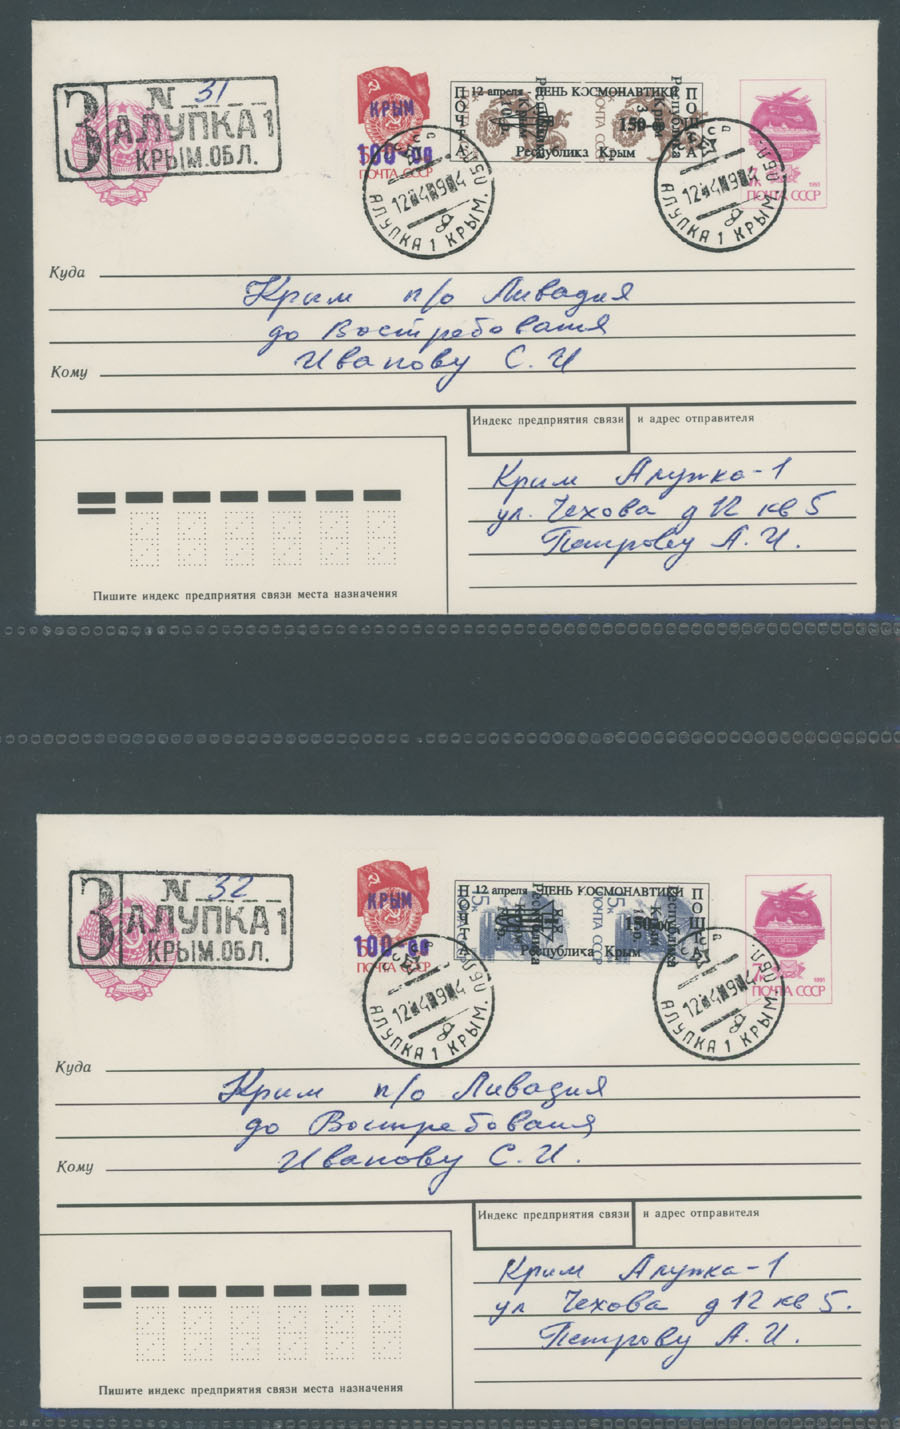 З N 31
АЛУПКА 1
КРЫМ.ОБЛ.
КРЫМ
100-00
ПОЧТА СССР
12 апреля ДЕНЬ КОСМОНАВТИКИ
ПОЧТА
ПОШТА
150
Республика Крым
1991
7к
ПОЧТА СССР
12 4 94
АЛУПКА 1 КРЫМ. ОБЛ.
12 4 94
АЛУПКА 1 КРЫМ. ОБЛ.
Куда
Крым п/о Ливадия
до Востребования
Кому
Иванову С. И
Индекс предприятия связи и адрес отправителя
Крим Алупка-1
ул. Чехова д 12 кв 5
Петрову А. И.
Пишите индекс предприятия связи места назначения
З N 32
АЛУПКА 1
КРЫМ.ОБЛ.
КРЫМ
100-00
ПОЧТА СССР
12 апреля ДЕНЬ КОСМОНАВТИКИ
ПОЧТА
ПОШТА
Республика Крым
1991
7к
ПОЧТА СССР
12 4 94
АЛУПКА 1 КРЫМ. ОБЛ.
12 4 94
АЛУПКА 1 КРЫМ. ОБЛ.
Куда
Крим п/о Ливадия
до Востребования
Кому
Иванову С. И.
Индекс предприятия связи и адрес отправителя
Крим Алупка-1
ул Чехова д 12 кв 5.
Петрову А. И.
Пишите индекс предприятия связи места назначения